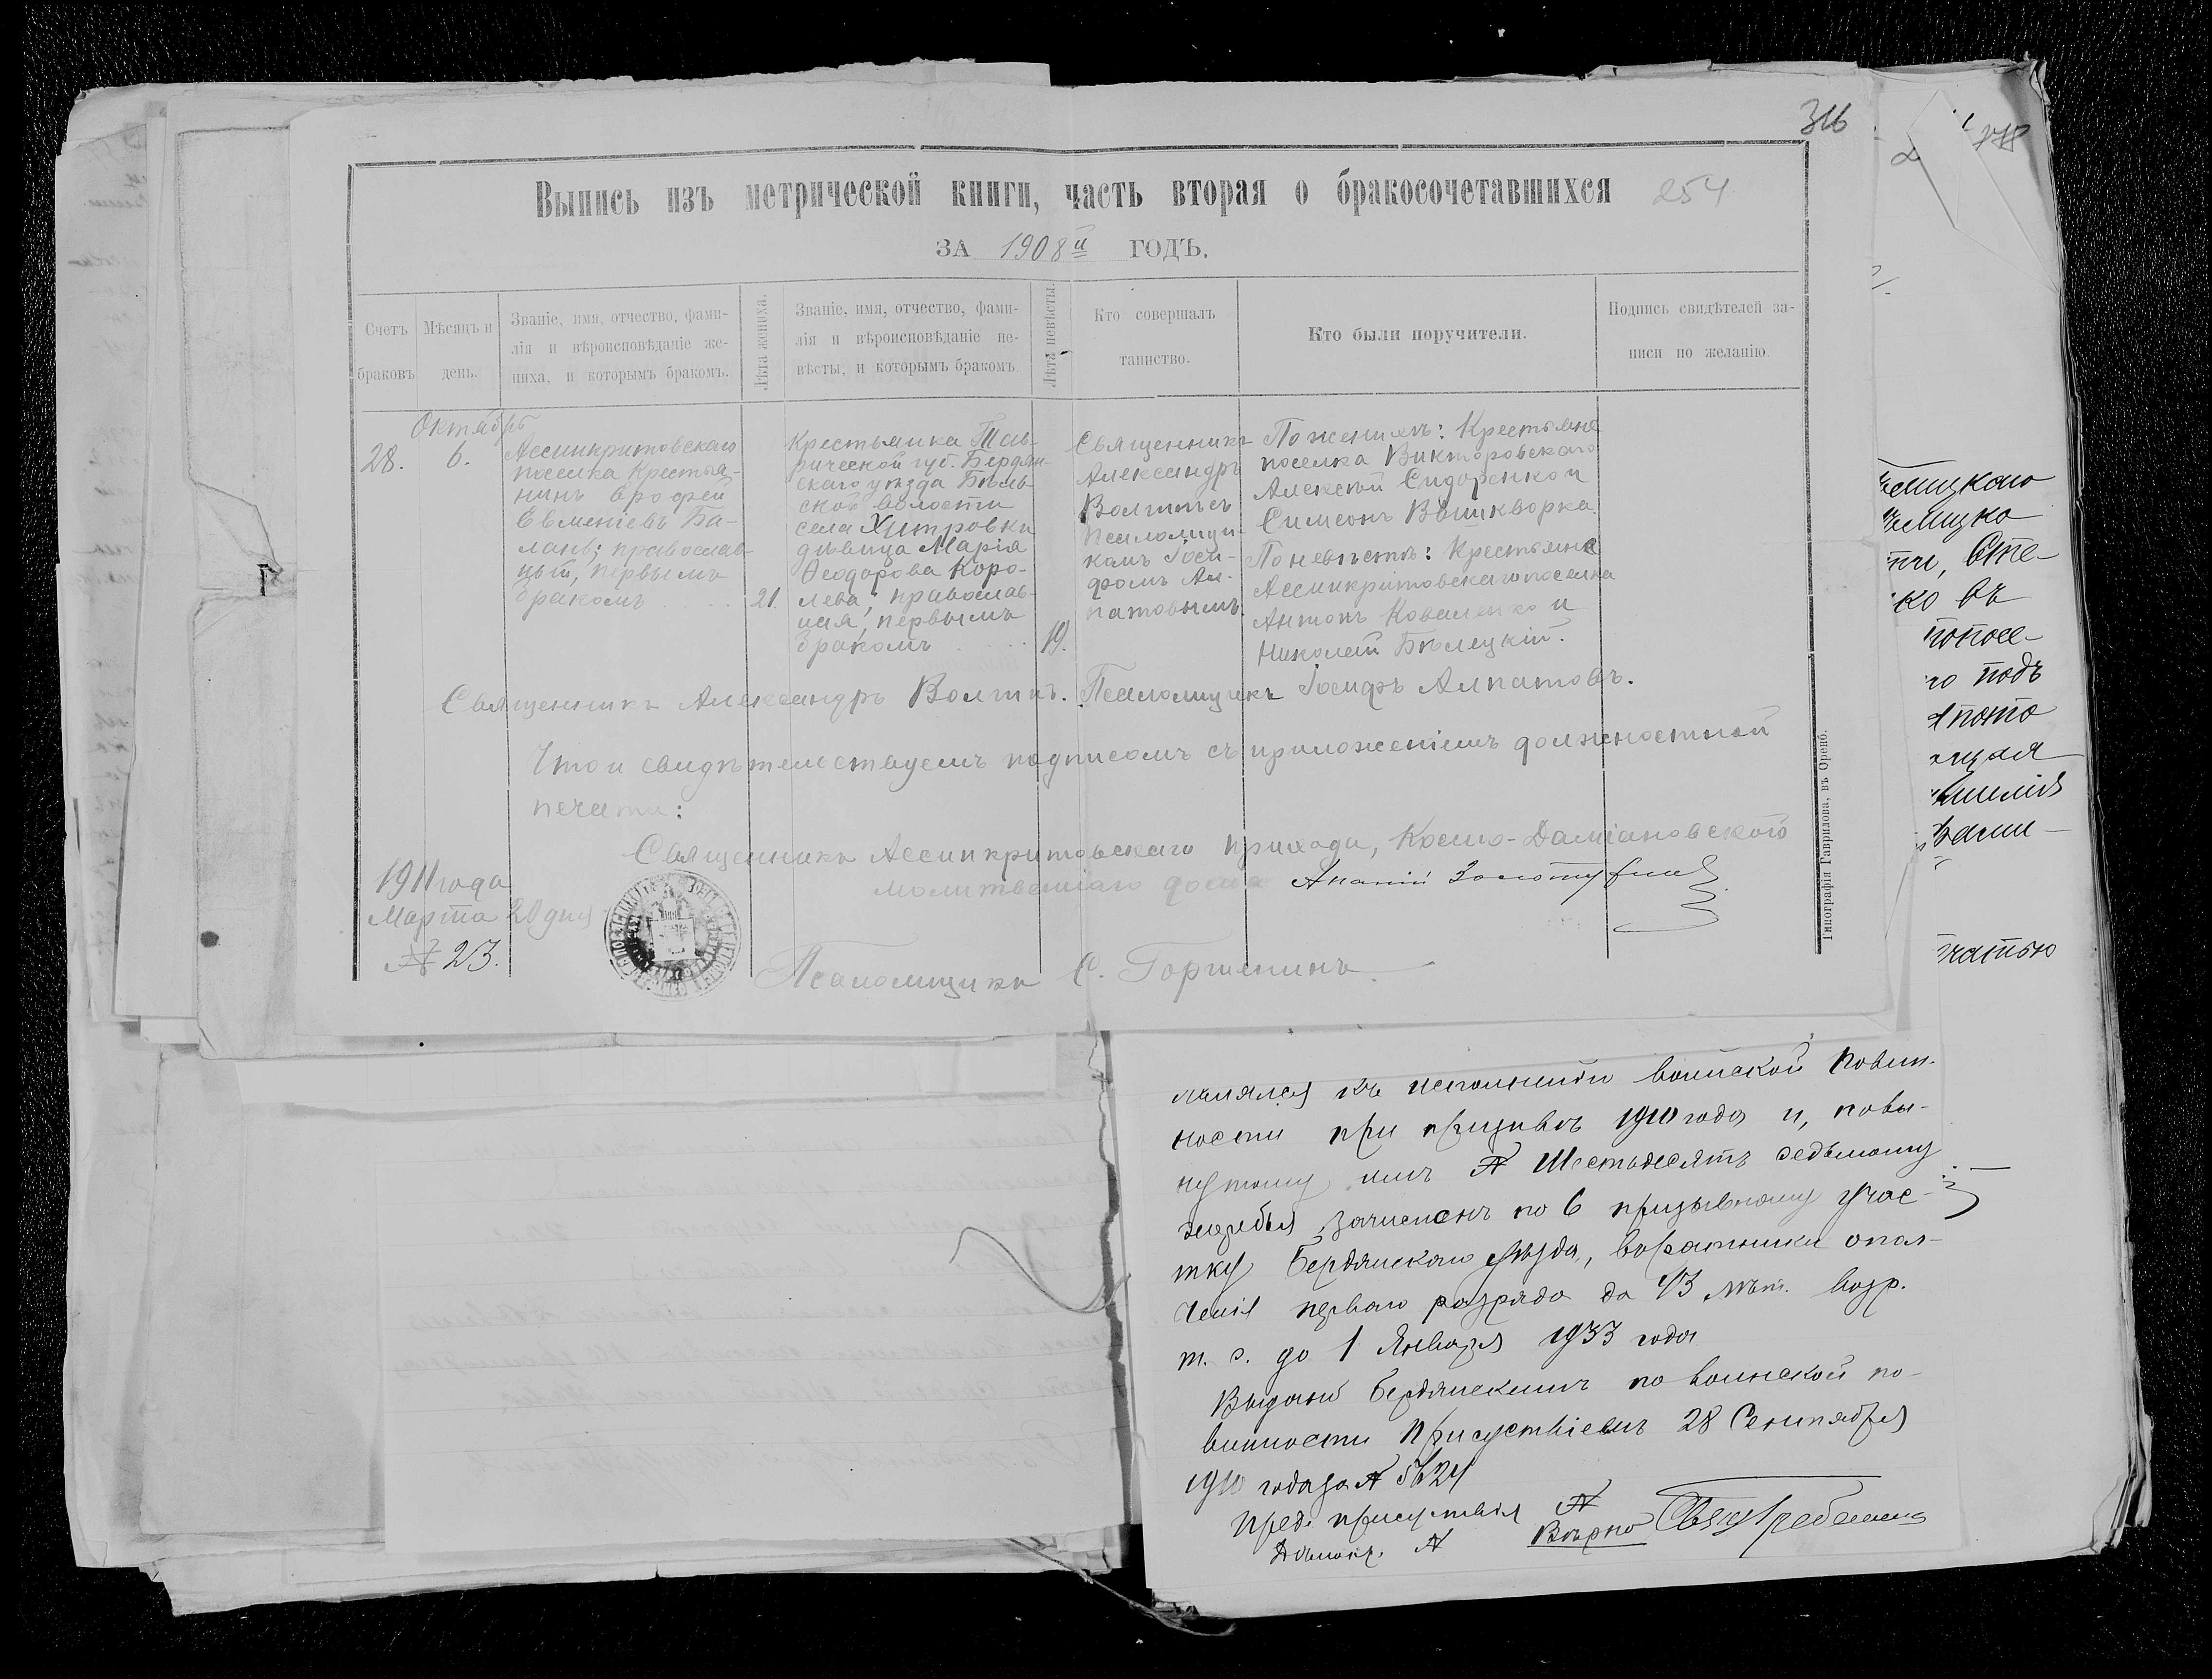 316
254
Выпись изъ метрической книги, часть вторая о бракосочетавшихся
ЗА 1908й ГОДЪ.
Счетъ
браковъ
Мѣсяцъ и
день.
Званіе, имя, отчество, фами-
лія и вѣроисповѣданіе же-
ниха, и которымъ бракомъ.
Лѣта жениха.
Званіе, имя, отчество, фами-
лія и вѣроисповѣданіе не-
вѣсты, и которымъ бракомъ
Лѣта невѣсты.
Кто совершалъ
таинство.
Кто были поручители.
Подпись свидѣтелей за-
писи по желанію.
28.
Октябрь
6.
Ассинкритовскаго
поселка крестья-
нинъ Ерофей
Евменіевъ Ба-
ланъ; православ-
ный, первымъ
бракомъ
21.
Крестьянка Тав-
рической губ. Бердян-
скаго уѣзда Бѣль-
ской волости
села Хитровки
дѣвица Марія
Ѳеодорова Коро-
лева; православ-
ная, первымъ
бракомъ
19.
Священникъ
Александръ
Волгинъ съ
псаломщи-
комъ Іоси-
фомъ Ал-
патовымъ.
По женихѣ: Крестьяне
поселка Викторовскаго
Алексѣй Сидоренко и
Симеонъ Вышкворка
По невѣстѣ: Крестьяне
Ассинкритовскаго поселка
Антонъ Коваленко и
Николай Бѣлецкій.
Священникъ Александръ Волгинъ. Псаломщикъ Іосифъ Алпатовъ.
Что и свидѣтельствуемъ подписомъ съ приложеніемъ должностной
печати:
Священникъ Ассинкритовскаго прихода, Космо-Даміановскаго
молитвеннаго дома Ананій
1911 года
Марта 20 дня
№ 23.
Псаломщикъ С. Горшенинъ
Типографія Гаврилова, въ Оренб.
ко въ
го подъ
чатью
лялся къ исполненію воинской повин-
ности при призывѣ 1910 года и, повы-
нутому имъ № Шестьдесятъ седьмому
жеребья, зачисленъ по 6 призывному учас-
тку Бердянскаго уѣзда, въ ратники опол-
ченія перваго разряда до 43 лѣт. возр.
т. е. до 1 Января 1933 года
Выдано Бердянскимъ по воинской по-
винности Присутствіемъ 28 Сентября
1910 года за № 5624
Пред. присутствія
Дѣлопр.
Вѣрно